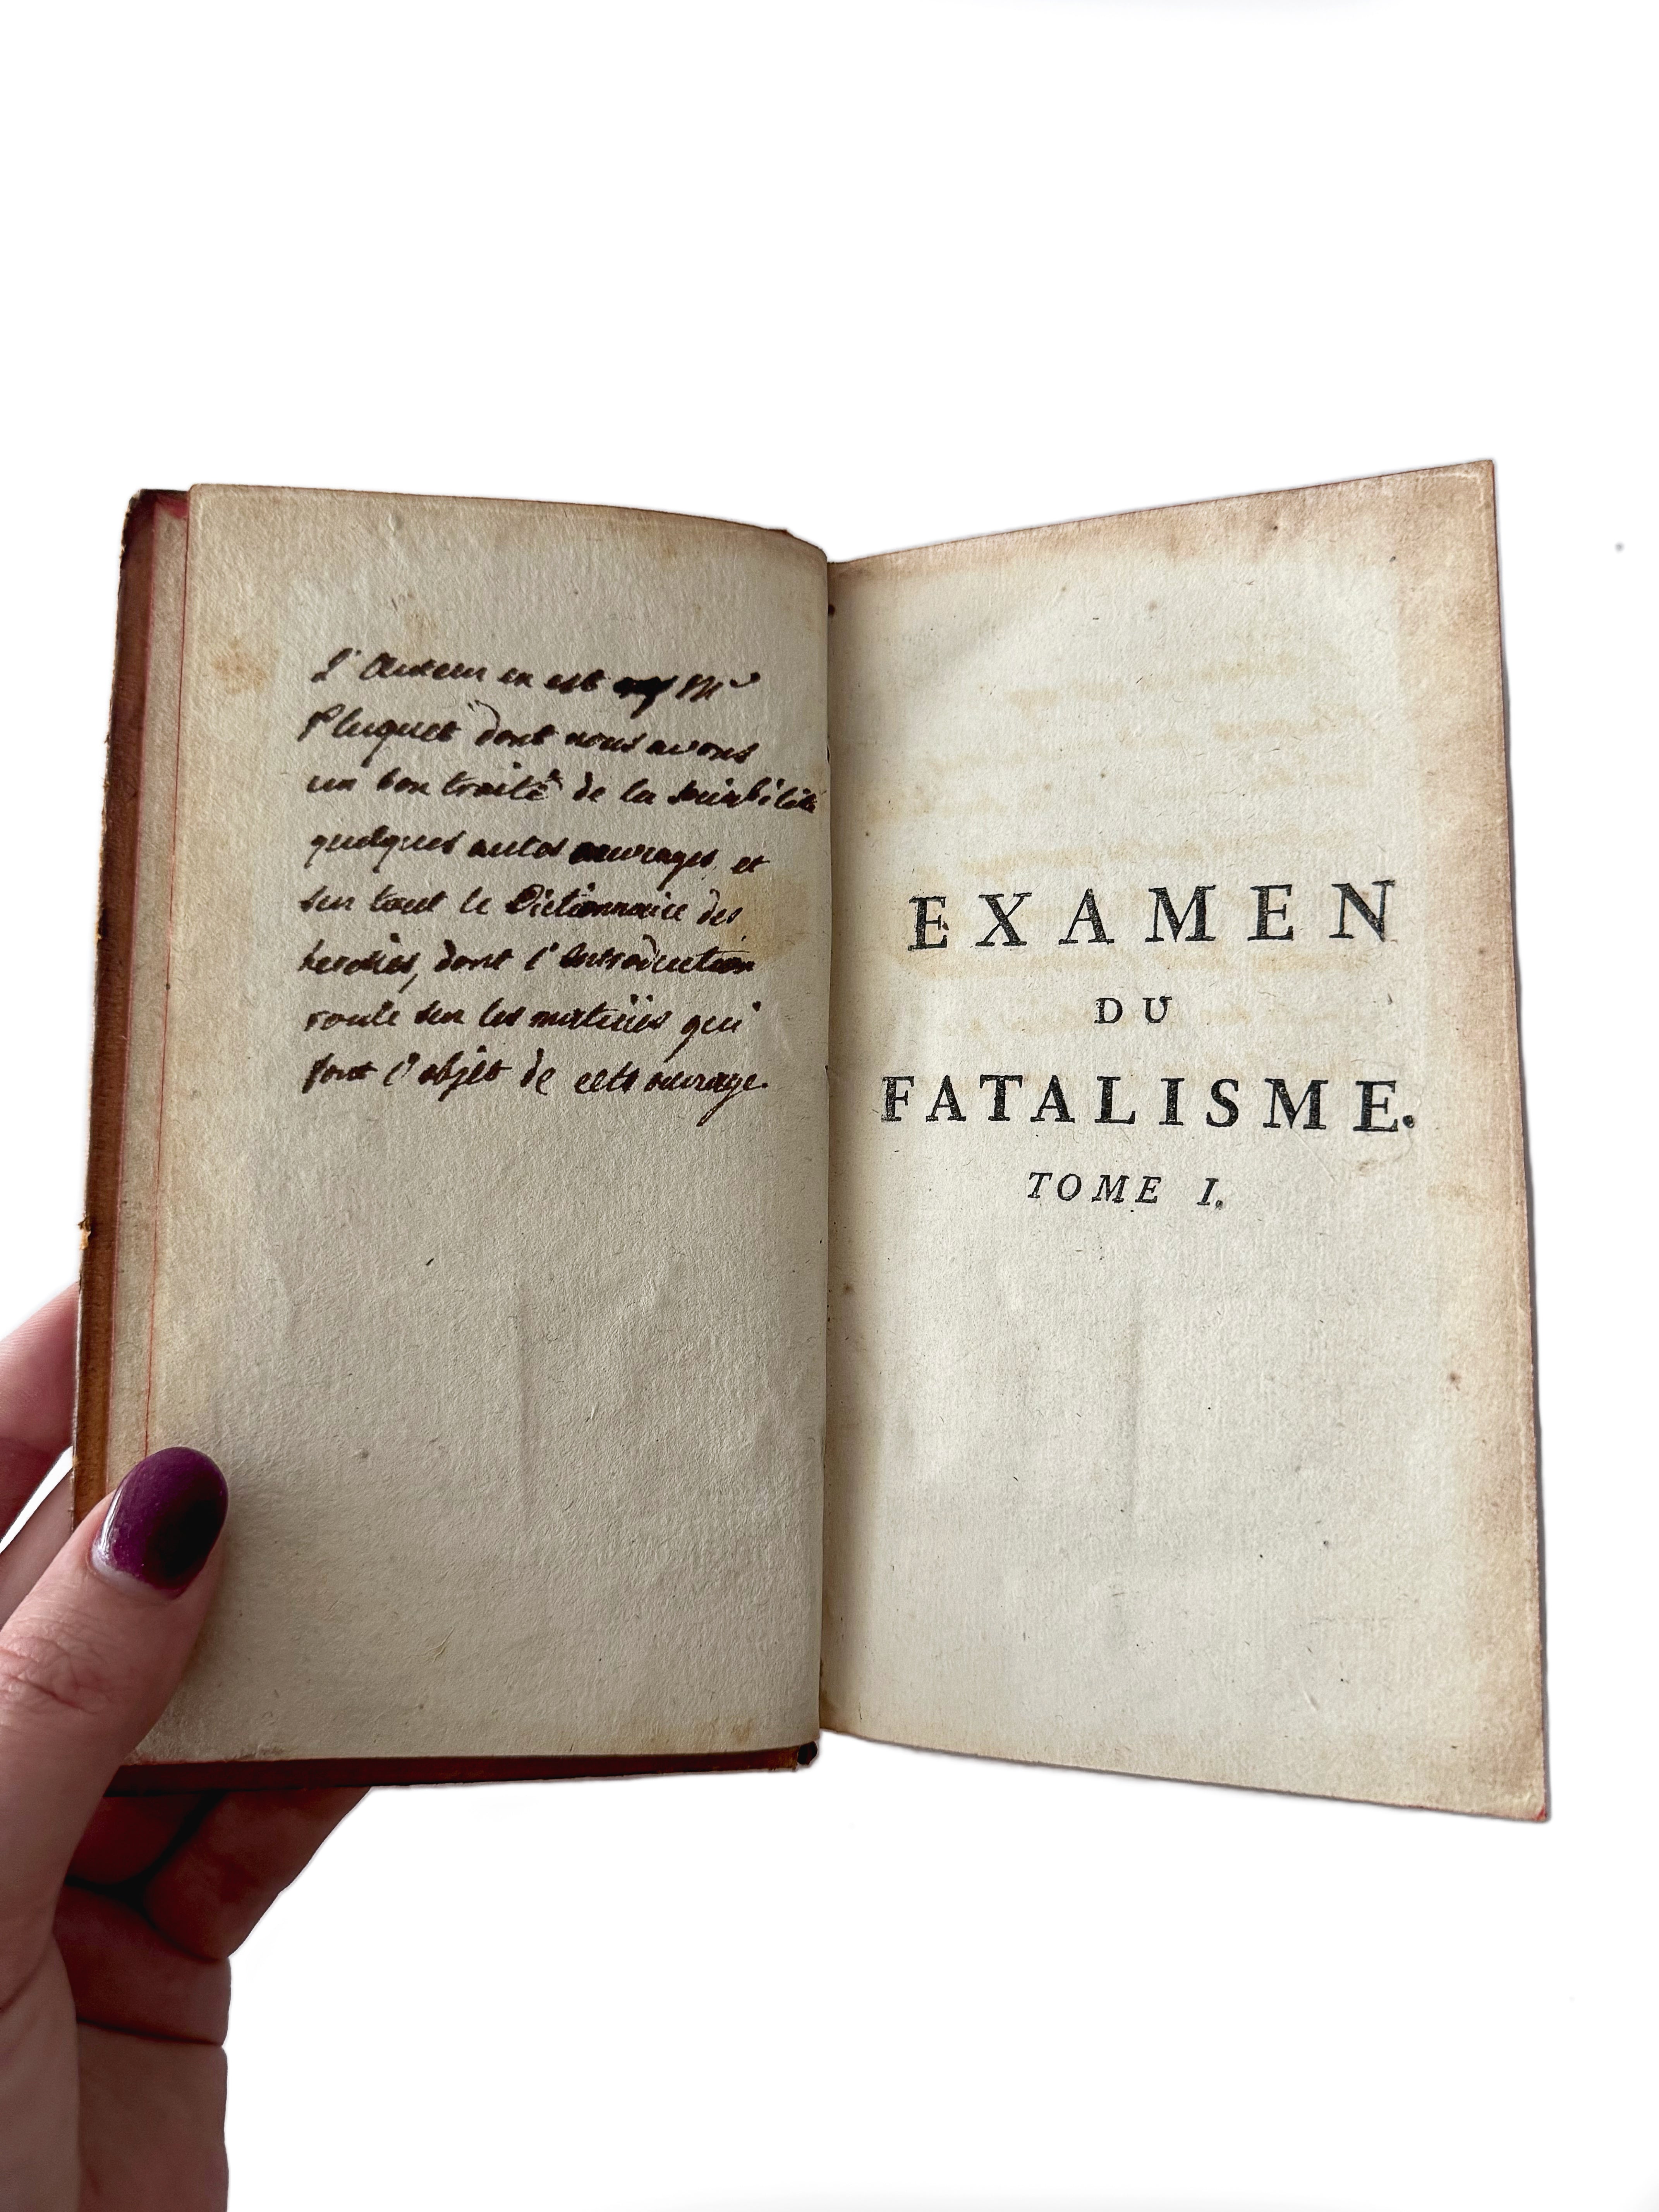 L'Auteur en est Mr
Pluquet dont nous avons
un bon traité de la sociabilité
quelques autres ouvrages, et
sur tout le Dictionnaire des
heresies, dont l'Introduction
roule sur les matieres qui
font l'objet de cet ouvrage.
EXAMEN
DU
FATALISME.
TOME I.